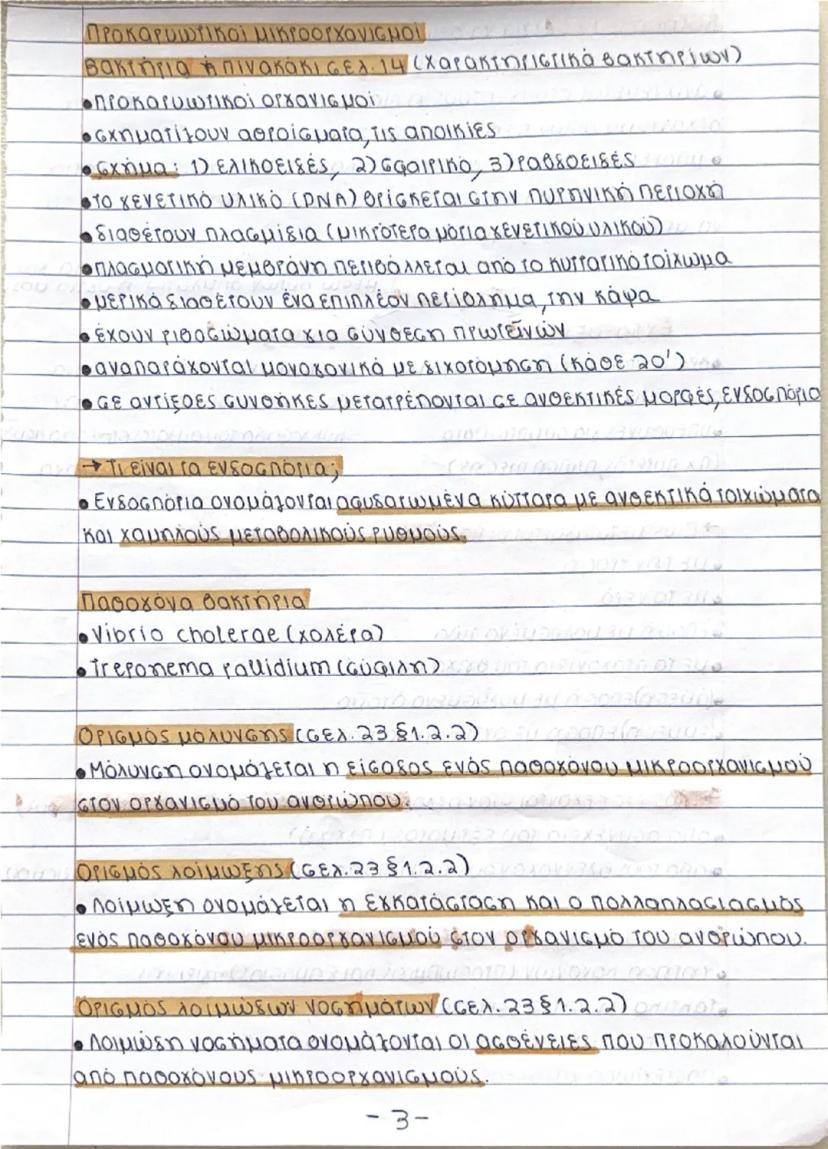 Προκαρυωτικοί μικροοργανισμοί
Βακτήρια ή πινακάκι σελ.14 (χαρακτηριστικά βακτηρίων)
•προκαρυωτικοί οργανισμοί
•σχηματίζουν αθροίσματα, τις αποικίες
•σχήμα: 1) ελικοειδές, 2) σφαιρικό, 3) ραβδοειδές
•το γενετικό υλικό (DNA) βρίσκεται στην πυρηνική περιοχή
•διαθέτουν πλασμίδια (μικρότερα μόρια γενετικού υλικού)
•πλασματική μεμβράνη περιβάλλεται από το κυτταρικό τοίχωμα
•μερικά διαθέτουν ένα επιπλέον περίβλημα, την κάψα
•έχουν ριβοσώματα για σύνθεση πρωτεϊνών
•αναπαράγονται μονογονικά με διχοτόμηση (κάθε 20')
•σε αντίξοες συνθήκες μετατρέπονται σε ανθεκτικές μορφές, ενδοσπόρια
→ Τι είναι τα ενδοσπόρια;
• Ενδοσπόρια ονομάζονται αφυδατωμένα κύτταρα με ανθεκτικά τοιχώματα
και χαμηλούς μεταβολικούς ρυθμούς.
Παθογόνα βακτήρια
•Vibrio cholerae (χολέρα)
•Treponema pallidium (σύφιλη)
Ορισμός μόλυνσης (σελ.23 §1.2.2)
• Μόλυνση ονομάζεται η είσοδος ενός παθογόνου μικροοργανισμού
στον οργανισμό του ανθρώπου.
Ορισμός λοίμωξης (σελ.23 §1.2.2)
• Λοίμωξη ονομάζεται η εγκατάσταση και ο πολλαπλασιασμός
ενός παθογόνου μικροοργανισμού στον οργανισμό του ανθρώπου.
Ορισμός λοιμωδών νοσημάτων (σελ.23 §1.2.2)
• Λοιμώδη νοσήματα ονομάζονται οι ασθένειες που προκαλούνται
από παθογόνους μικροοργανισμούς.
-3-